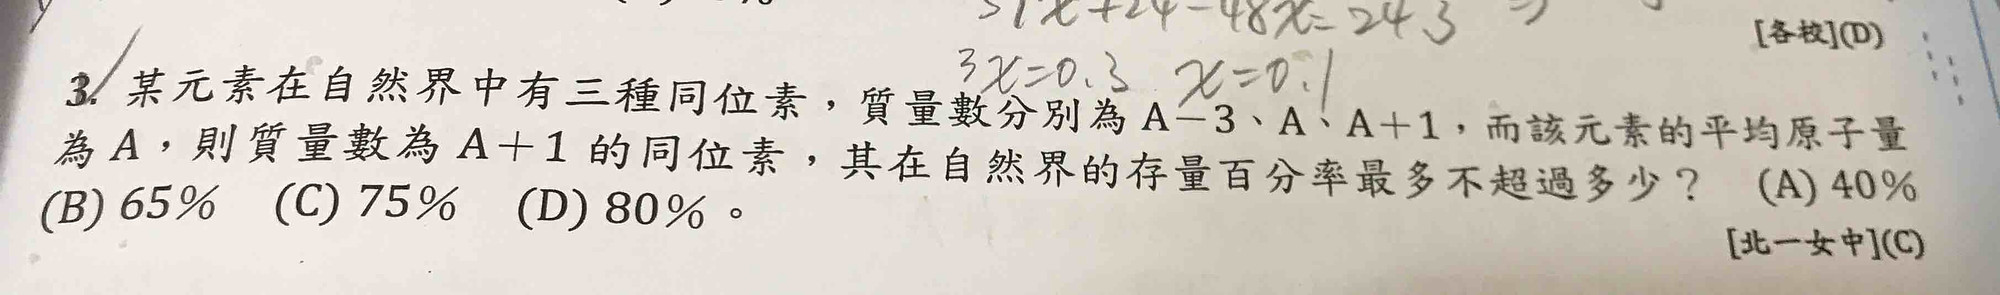 51x+24-48x=24.3
[各校](D)
3x=0.3 x=0.1
3. 某元素在自然界中有三種同位素,質量數分別為 A-3、A、A+1,而該元素的平均原子量
為 A,則質量數為 A+1 的同位素,其在自然界的存量百分率最多不超過多少? (A) 40%
(B) 65% (C) 75% (D) 80%。
[北一女中](C)